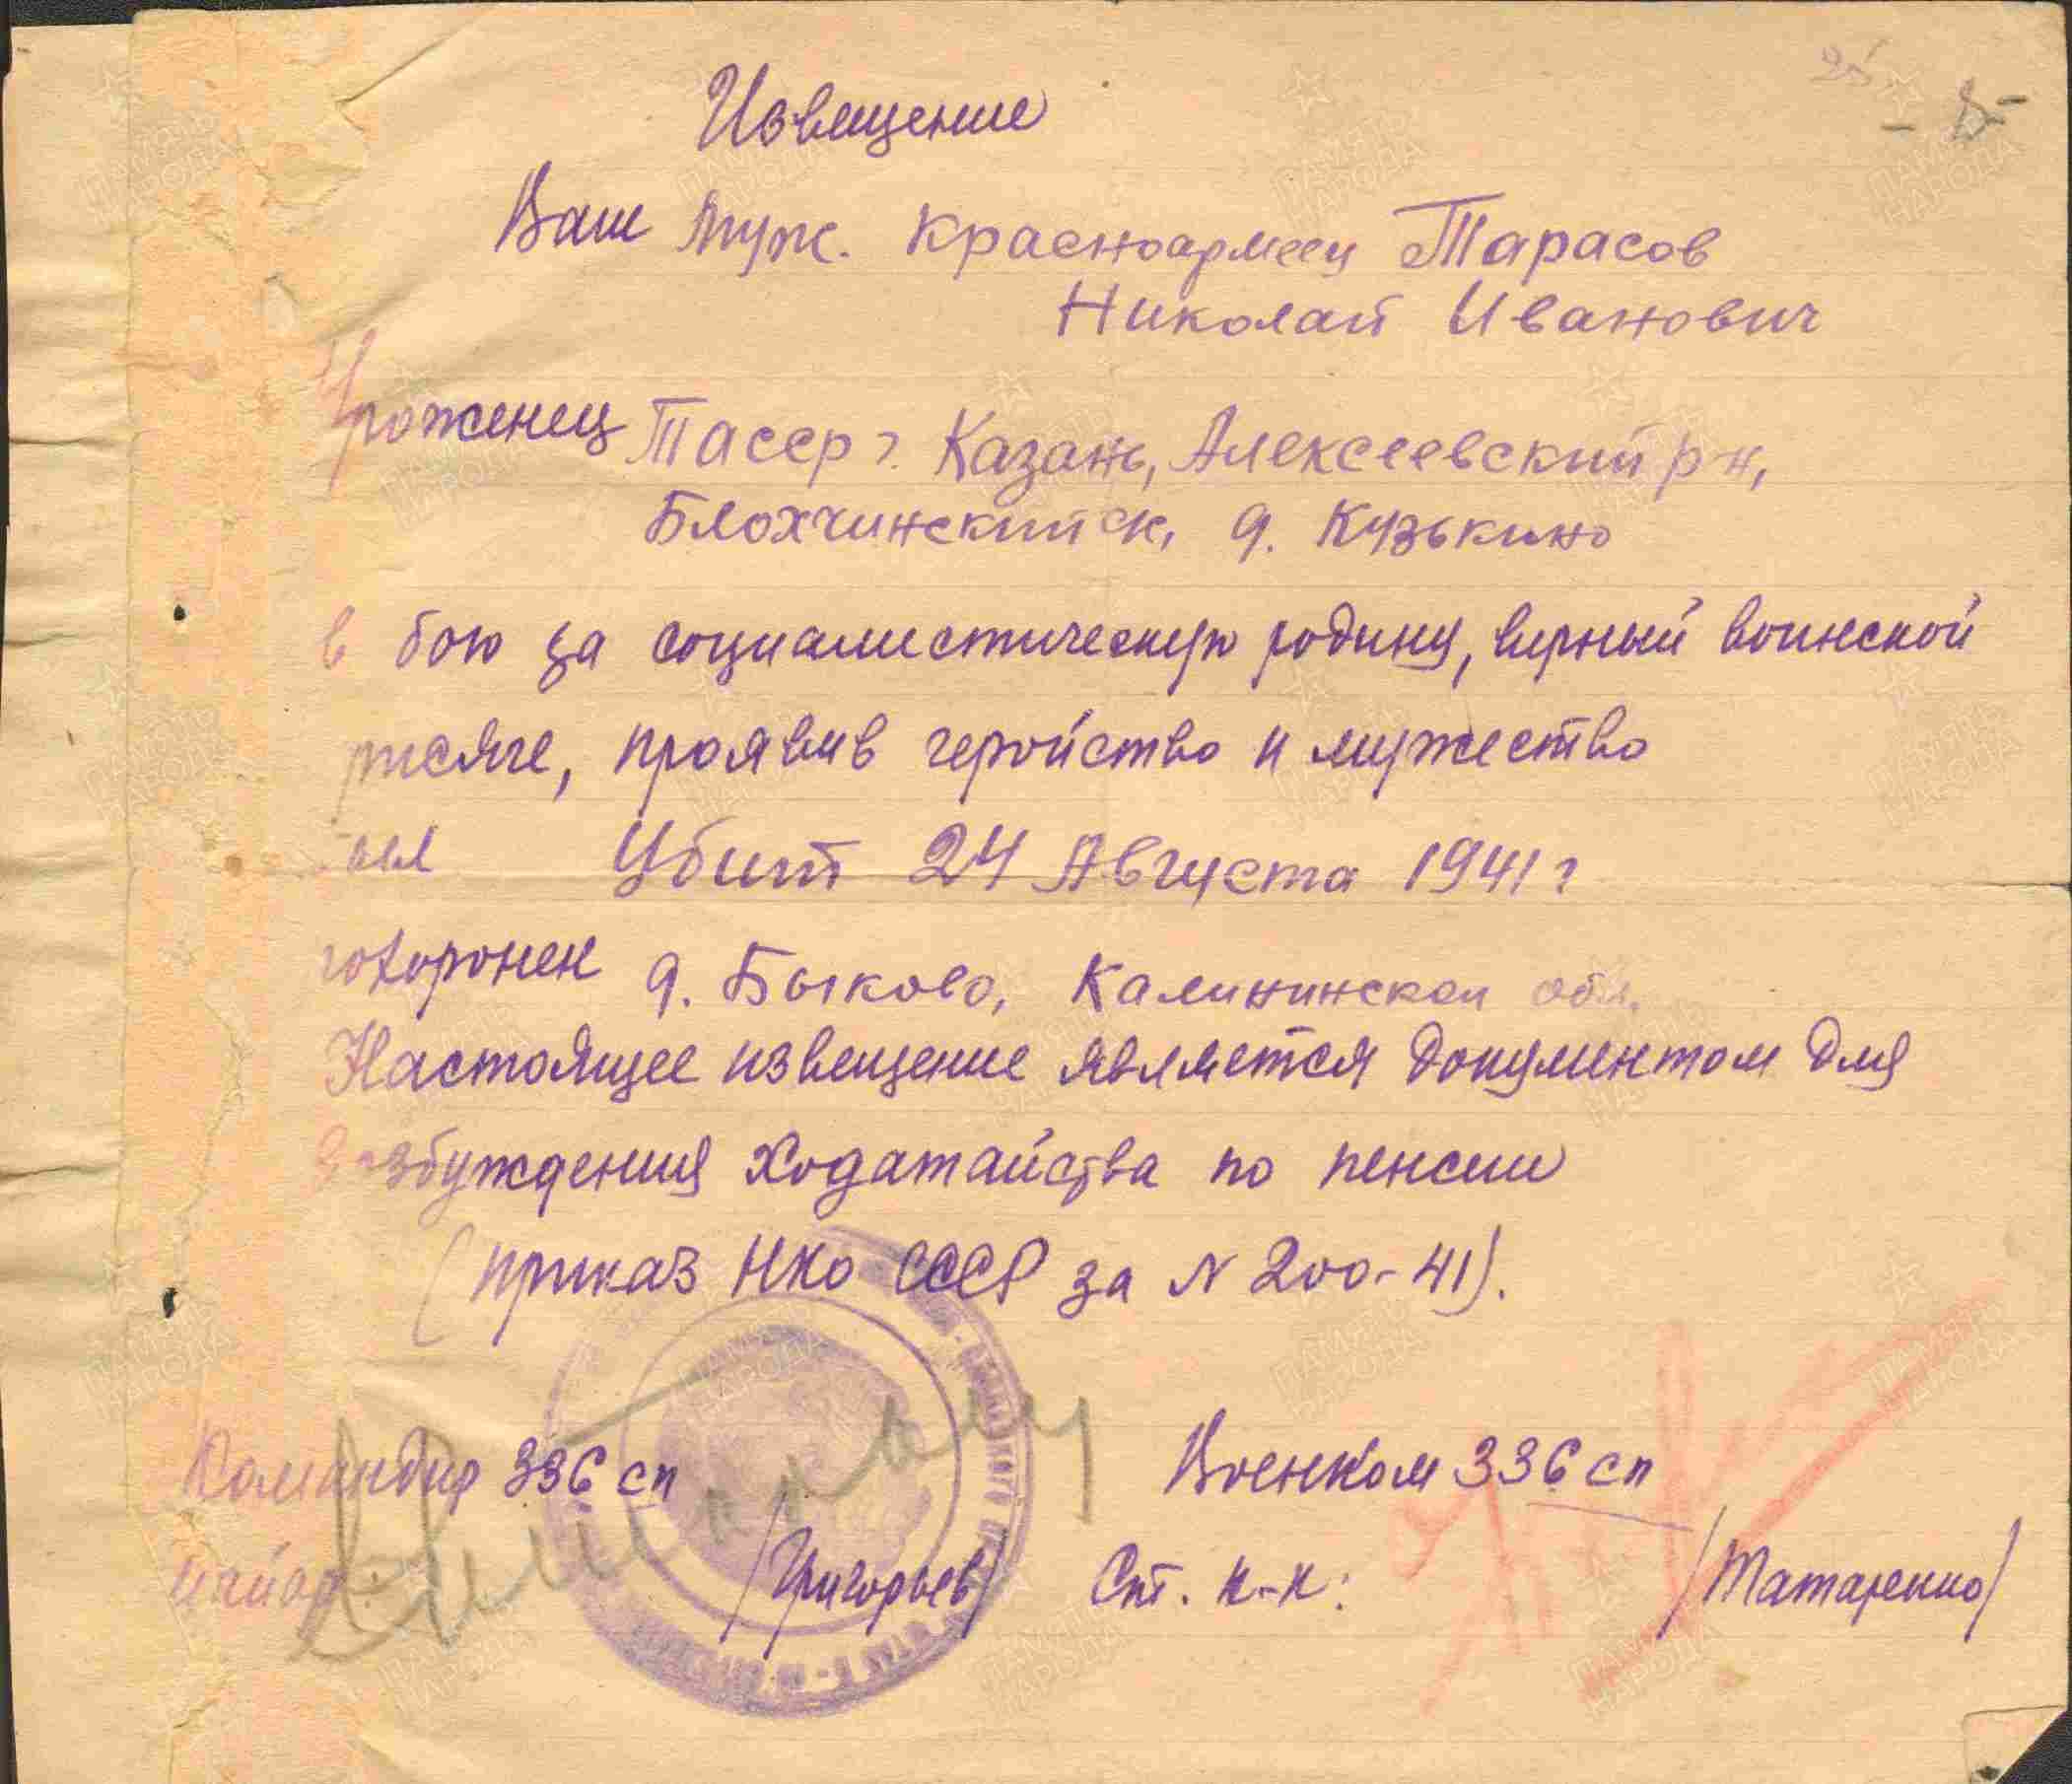 Извещение
Ваш муж. красноармеец Тарасов
Николай Иванович
Уроженец Тасср г. Казань, Алексеевский р-н,
Блохчинский с/с, д. Кузькино
в бою за социалистическую родину, верный воинской
присяге, проявив геройство и мужество
был Убит 24 Августа 1941 г
похоронен д. Быково, Калининской обл.
Настоящее извещение является документом для
возбуждения ходатайства по пенсии
(приказ НКО СССР за N 200-41).
Командир 336 сп Военком 336 сп
майор: /Григорьев/ Ст. п-к: /Татаренко/